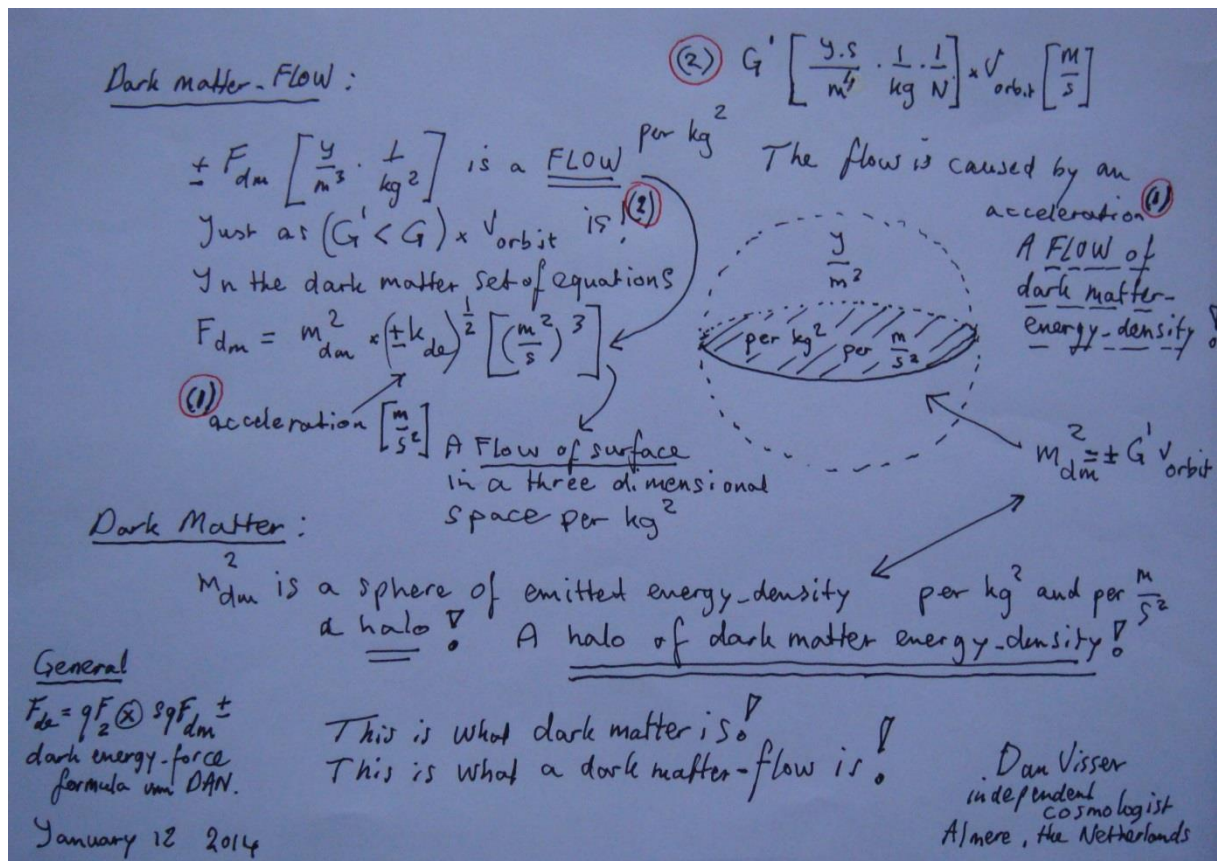 Dark matter-FLOW:
± F_dm [y/m³ · 1/kg²] is a FLOW per kg²
Just as (G' < G) × V_orbit is! (2)
In the dark matter set of equations
F_dm = m²_dm × (± k_de)^½ [(m²/s)³]
(1) acceleration [m/s²]
A Flow of surface
in a three dimensional
space per kg²
(2) G' [y.s/m⁴ · 1/kg · 1/N] × V_orbit [m/s]
The flow is caused by an
acceleration (1)
A FLOW of
dark matter-
energy-density!
y/m²
per kg² per m/s²
m²_dm = ± G' V_orbit
Dark Matter:
m²_dm is a sphere of emitted energy-density per kg² and per m/s²
a halo! A halo of dark matter energy-density!
General
F_de = qF_2 ⊗ sqF_dm ±
dark energy-force
formula DAN.
January 12 2014
This is what dark matter is!
This is what a dark matter-flow is!
Dan Visser
independent
cosmologist
Almere, the Netherlands